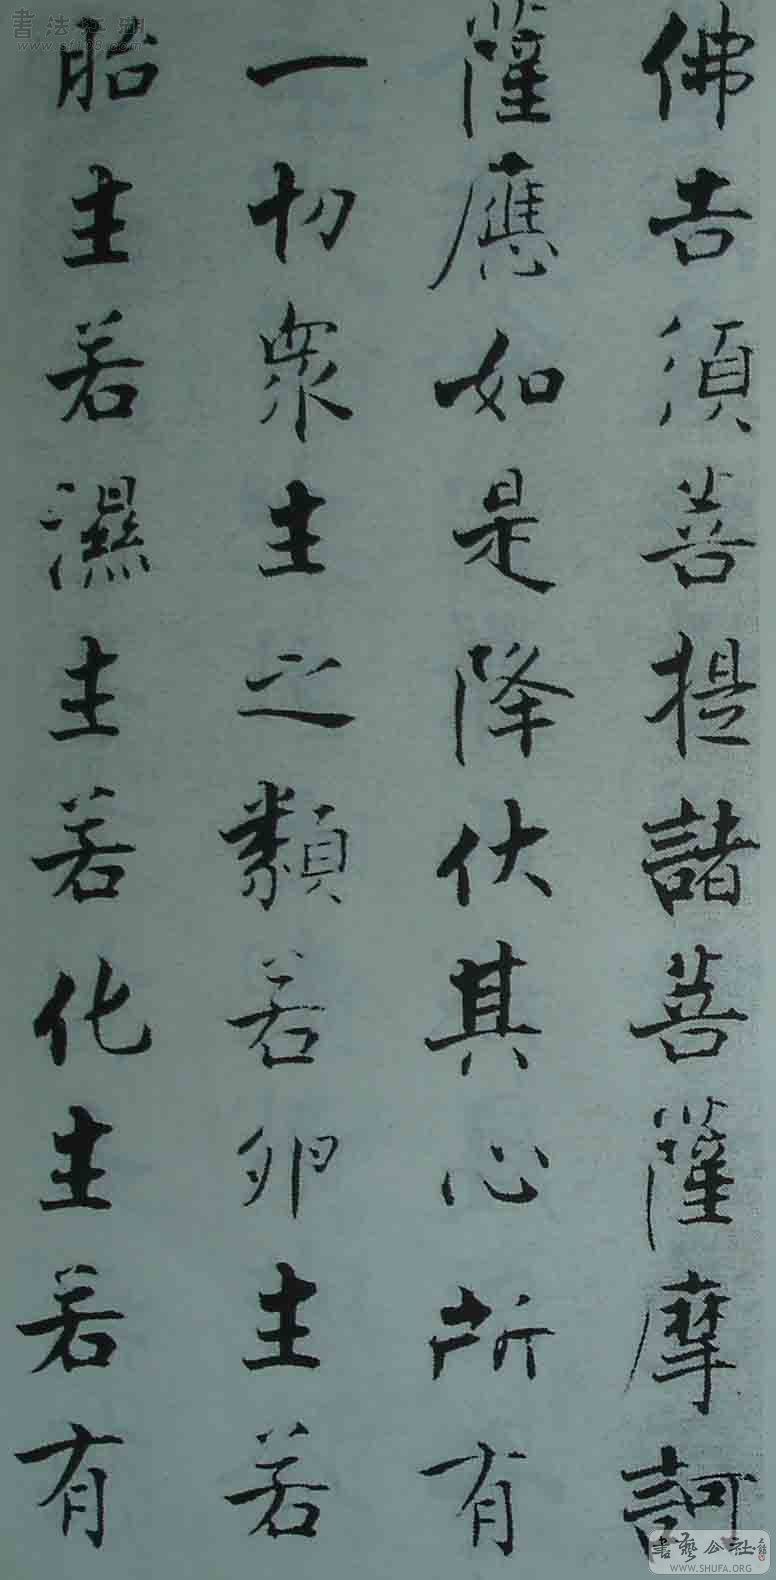 佛告須菩提諸菩薩摩訶
薩應如是降伏其心所有
一切眾生之類若卵生若
胎生若濕生若化生若有
書法江湖
www.sf108.com
書藝公社
WWW.SHUFA.ORG